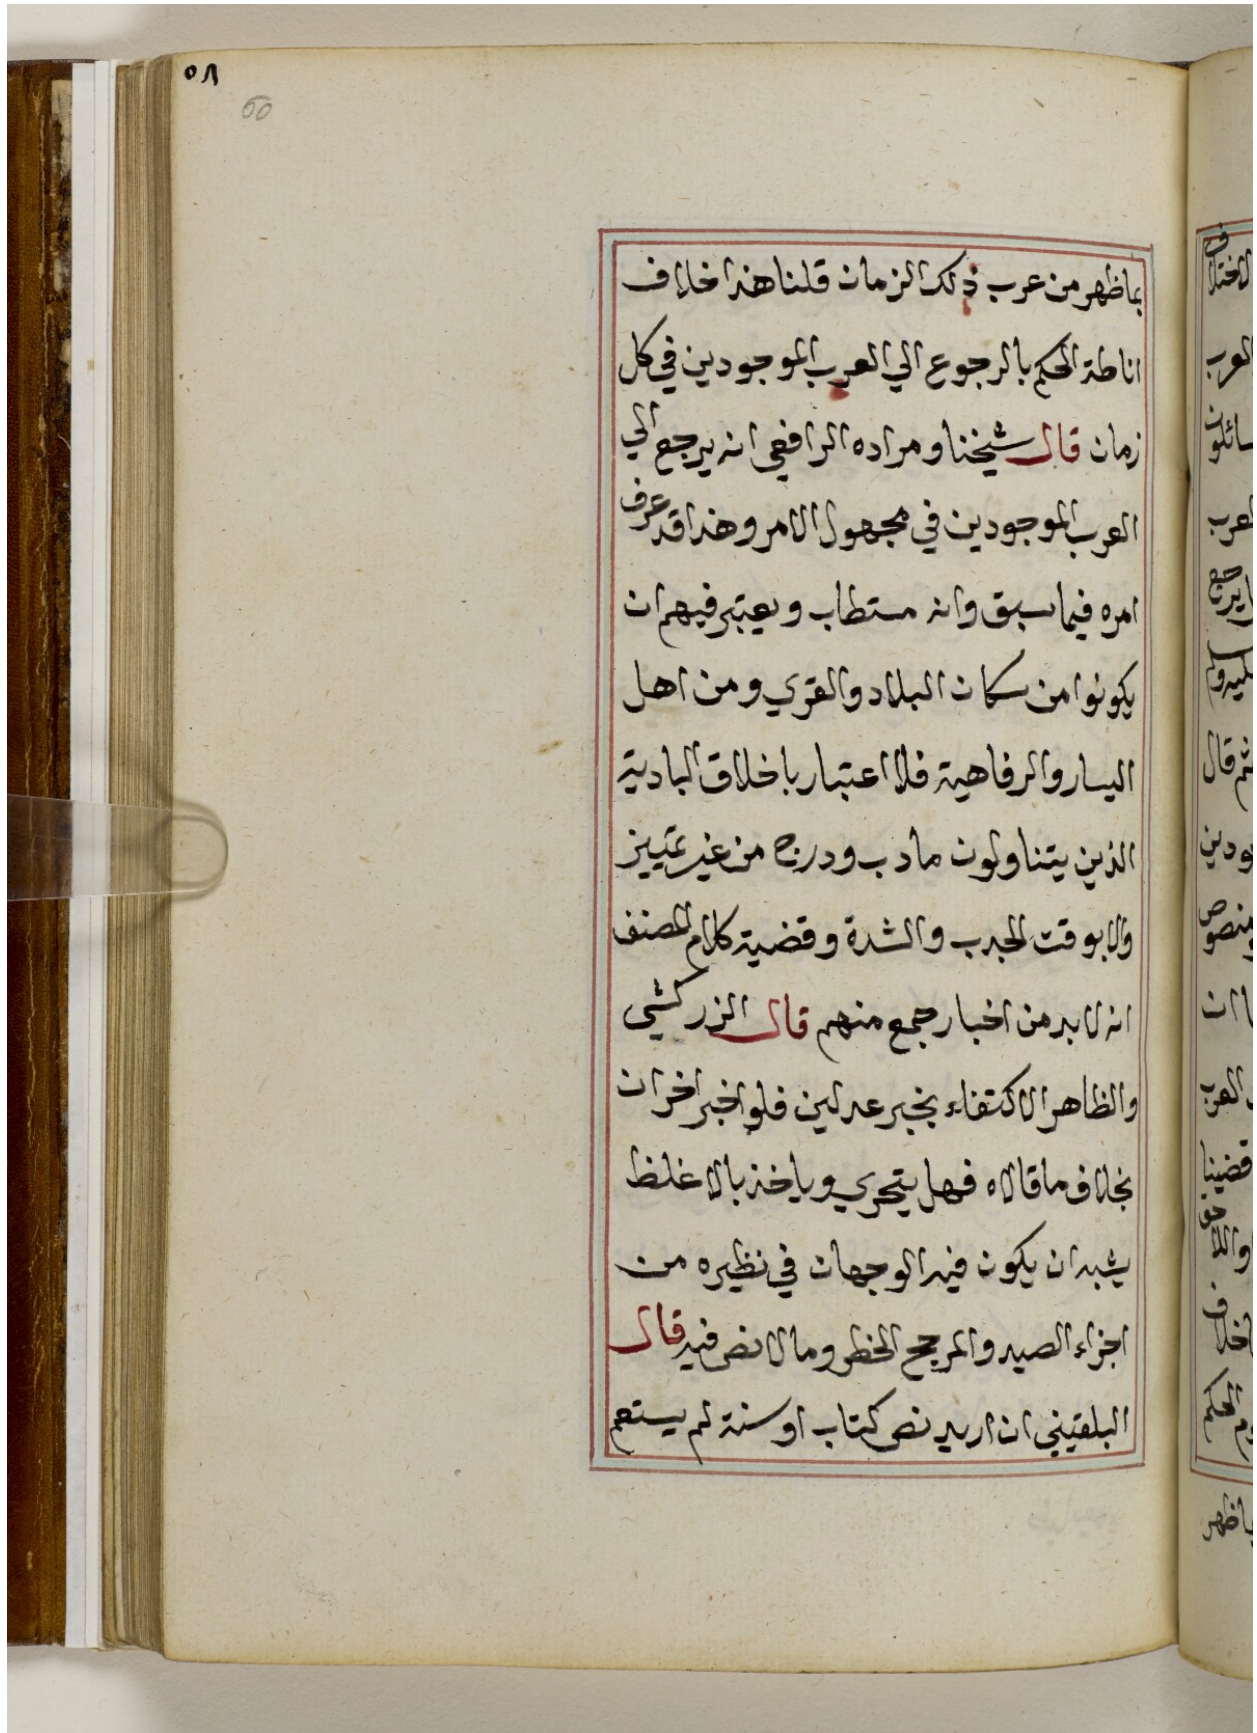 ٥٨
60
بماظهر من عرب ذلك الزمان قلنا هذا خلاف
اناطة الحكم بالرجوع الي العرب الموجودين في كل
زمان قال شيخنا ومراده الرافعي انه يرجع الي
العرب الموجودين في مجهول الامر وهذا قد عرف
امره فيما سبق وانه مستطاب ويعتبر فيهم ان
يكونوا من سكان البلاد والقري ومن اهل
اليسار والرفاهية فلا اعتبار باخلاق البادية
الذين يتناولون ما دب ودرج من غير تمييز
ولا بوقت الجدب والشدة وقضية كلام المصنف
انه لا بد من اخبار جمع منهم قال الزركشي
والظاهر الاكتفاء بخبر عدلين فلو اخبر اخران
بخلاف ما قالاه فهل يتحري وياخذ بالاغلظ
يشبه ان يكون فيه الوجهان في نظيره من
اجزاء الصيد والمرجح الحظر وما لا نص فيه قال
البلقيني ان اريد نص كتاب او سنة لم يستعم
الاختلاف
العرب
سائلون
العرب
ثم قال
قضينا
الحكم